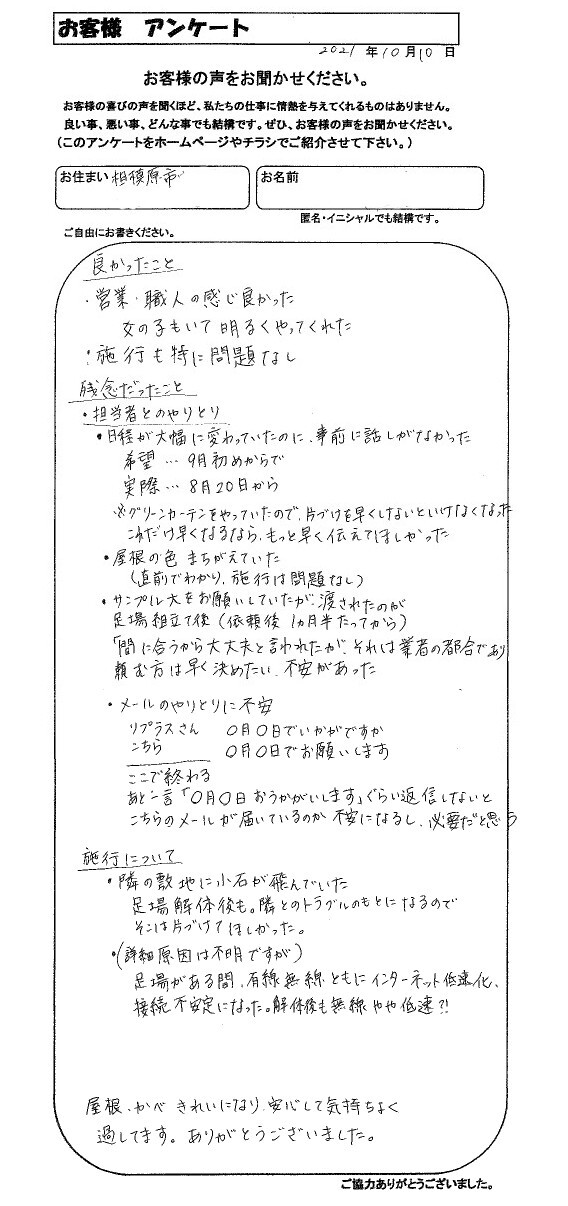 お客様 アンケート
2021 年 10 月 10 日
お客様の声をお聞かせください。
お客様の喜びの声を聞くほど、私たちの仕事に情熱を与えてくれるものはありません。
良い事、悪い事、どんな事でも結構です。ぜひ、お客様の声をお聞かせください。
(このアンケートをホームページやチラシでご紹介させて下さい。)
お住まい 相模原市
お名前
匿名・イニシャルでも結構です。
ご自由にお書きください。
良かったこと
・営業・職人の感じ良かった
女の子もいて明るくやってくれた
・施行も特に問題なし
残念だったこと
・担当者とのやりとり
・日程が大幅に変わっていたのに、事前に話しがなかった
希望 … 9月初めからで
実際 … 8月20日から
※グリーンカーテンをやっていたので、片づけを早くしないといけなくなった
これだけ早くなるなら、もっと早く伝えてほしかった
・屋根の色 まちがえていた
(直前でわかり、施行は問題なし)
・サンプル大をお願いしていたが、渡されたのが
足場組立て後 (依頼後 1カ月半たってから)
「間に合うから大丈夫と言われたが、それは業者の都合であり
頼む方は早く決めたい、不安があった
・メールのやりとりに不安
リプラスさん 〇月〇日でいかがですか
こちら 〇月〇日でお願いします
ここで終わる
あと一言「〇月〇日 おうかがいします」ぐらい返信しないと
こちらのメールが届いているのか 不安になるし、必要だと思う
施行について
・隣の敷地に小石が飛んでいた
足場解体後も。隣とのトラブルのもとになるので
そこは片づけてほしかった。
・(詳細原因は不明ですが)
足場がある間、有線無線ともにインターネット低速化、
接続不安定になった。解体後も無線やや低速?!
屋根、かべ きれいになり、安心して気持ちよく
過してます。ありがとうございました。
ご協力ありがとうございました。